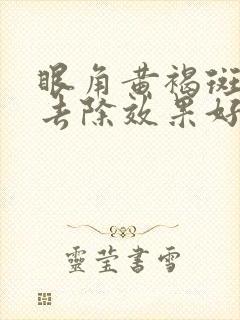 眼角黄褐斑
去除效果好
靈莹書雪